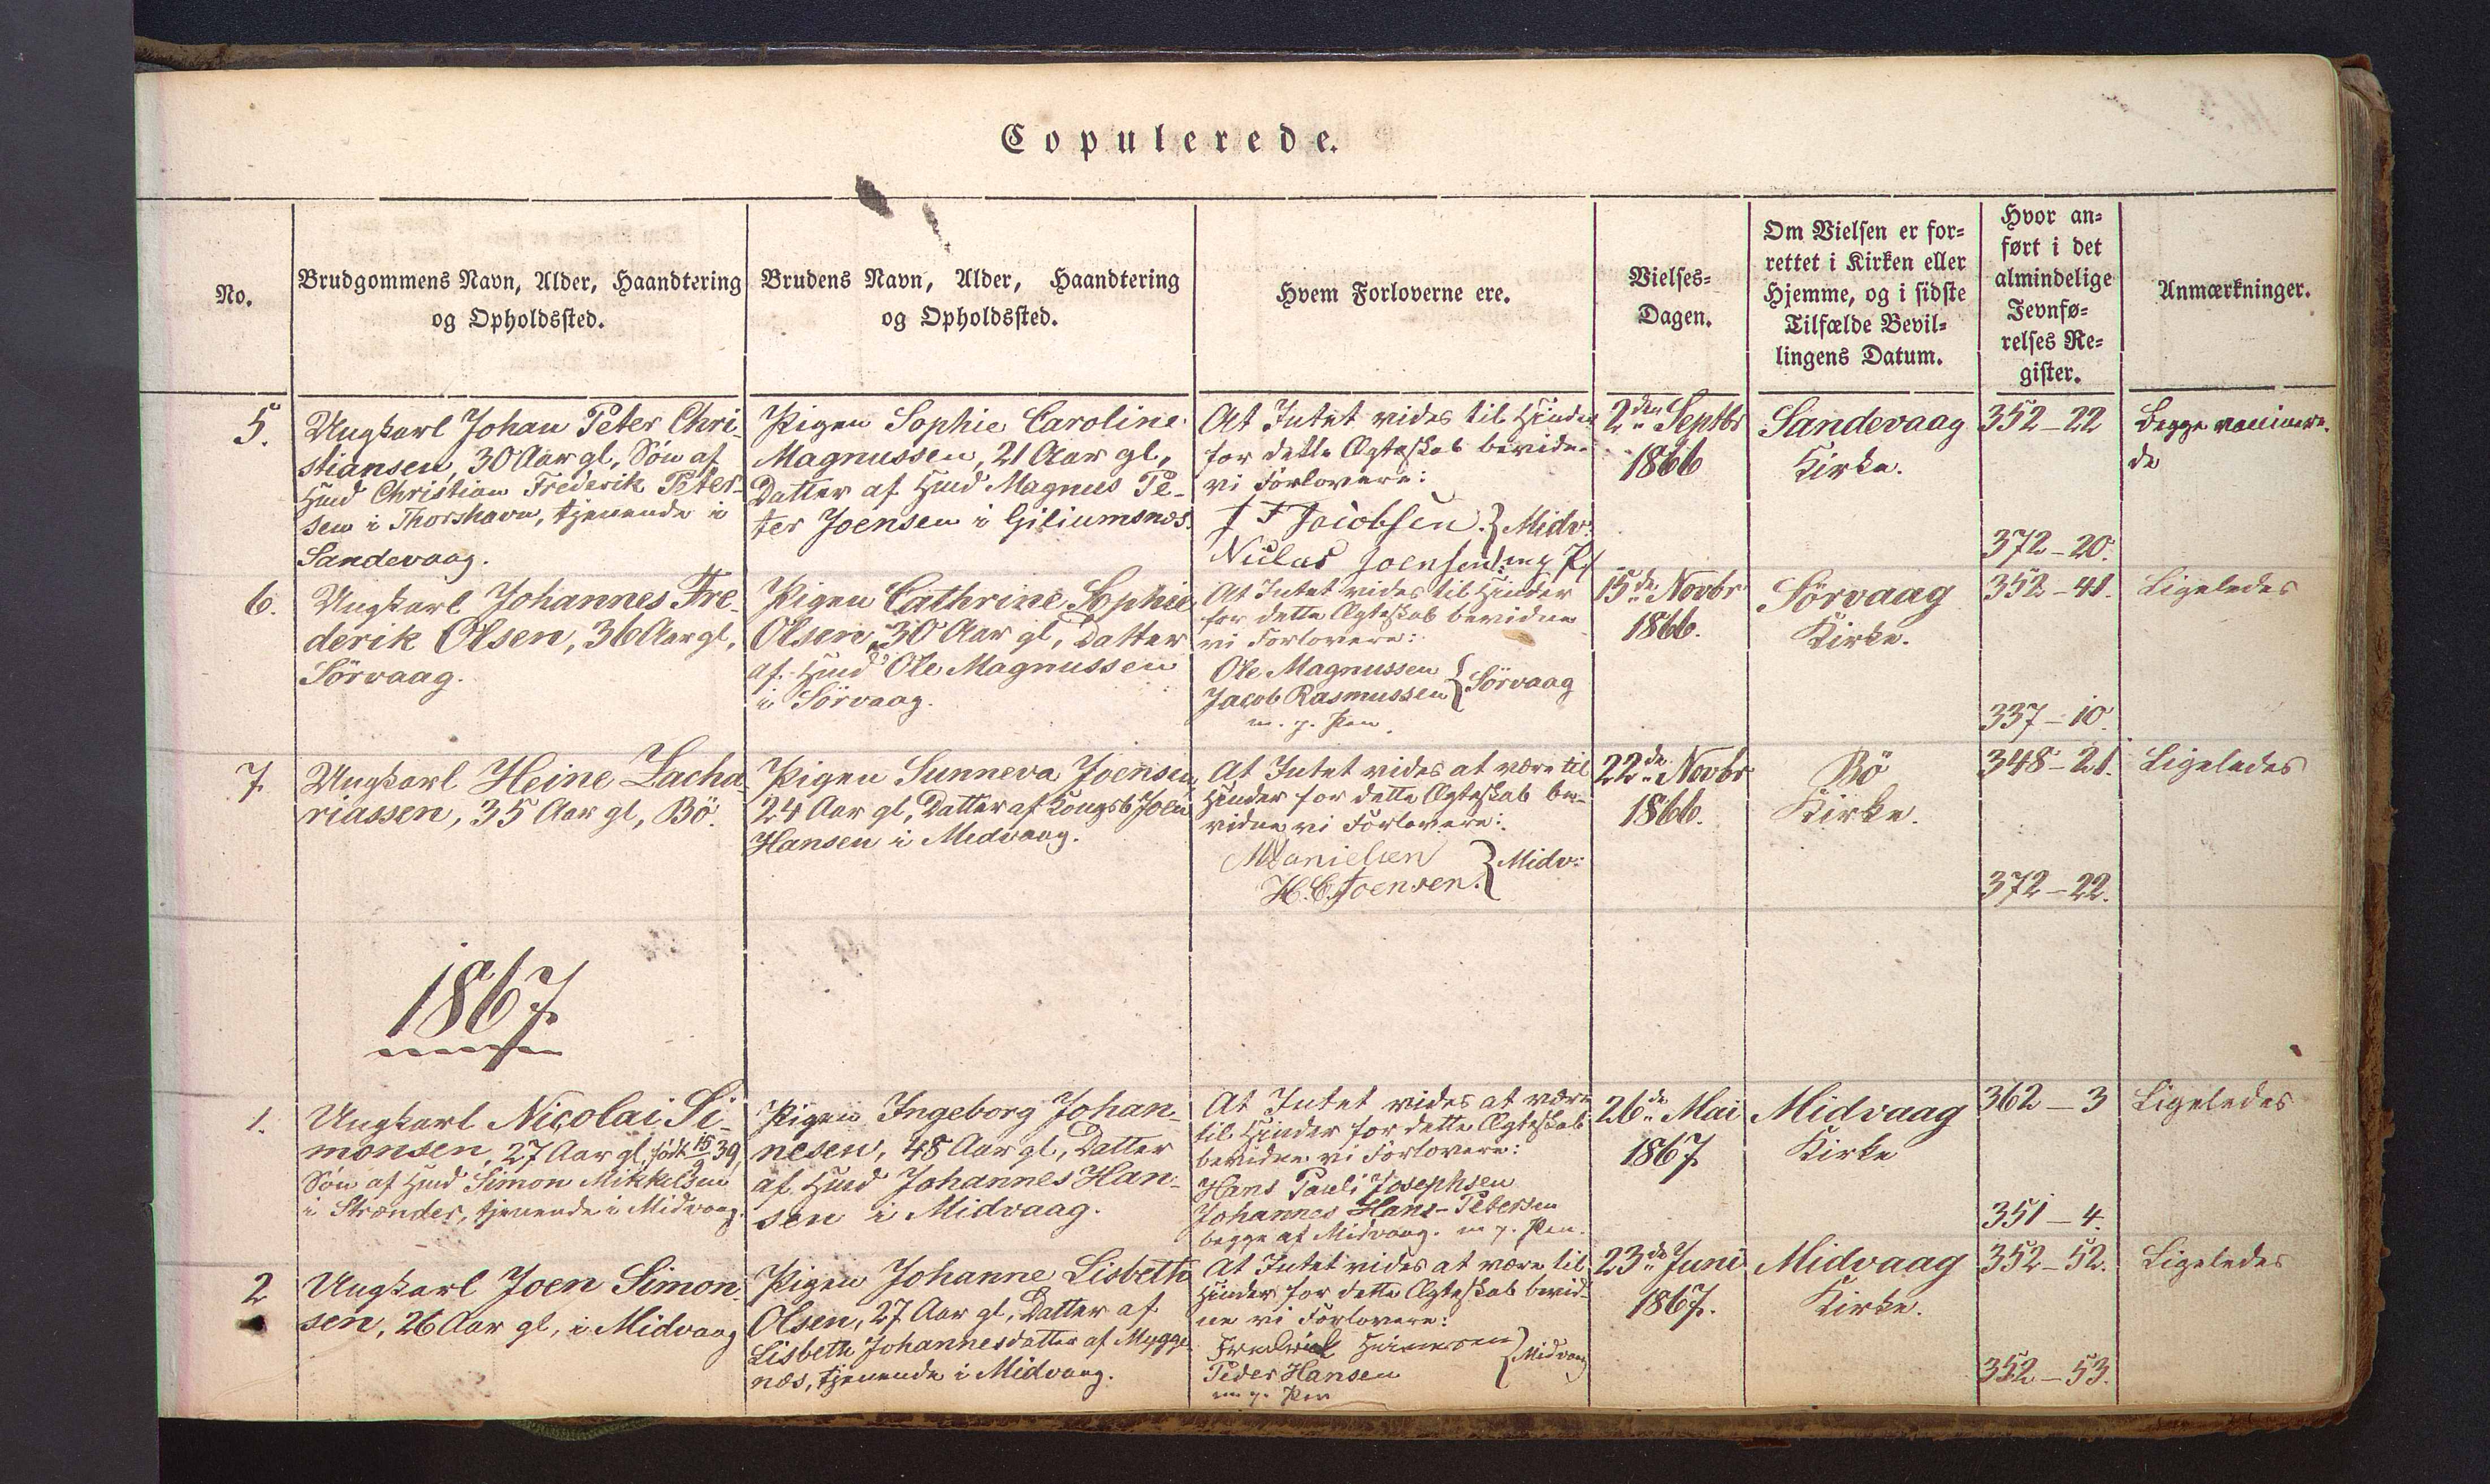 Copulerede.
No.
Brudgommens Navn, Alder, Haandtering
og Opholdssted.
Brudens Navn, Alder, Haandtering
og Opholdssted.
Hvem Forloverne ere.
Vielses-
Dagen.
Om Vielsen er for-
rettet i Kirken eller
Hjemme, og i sidste
Tilfælde Bevil-
lingens Datum.
Hvor an-
ført i det
almindelige
Jevnfø-
relses Re-
gister.
Anmærkninger.
5.
Ungkarl Johan Peter Chri-
stiansen, 30 Aar gl, Søn af
Huusmd Christian Frederik Peter-
sen i Thorshavn, tjenende i
Sandevaag.
Pigen Sophie Caroline
Magnussen, 21 Aar gl,
Datter af Huusmd Magnus Pe-
ter Joensen i Giliumsnæs.
At Intet vides til Hinder
for dette Ægteskab bevidne
vi Forlovere:
J J Jacobsen } Midv:
Niclas Joensen m p P
2den Septbr
1866
Sandevaag
Kirke.
352-22
372-20.
Begge vaccinere-
de
6.
Ungkarl Johannes Fre-
derik Olsen, 36 Aar gl,
Sörvaag.
Pigen Cathrine Sophie
Olsen, 30 Aar gl, Datter
af Huusmd Ole Magnussen
i Sörvaag.
At Intet vides til Hinder
for dette Ægteskab bevidne
vi Forlovere:
Ole Magnussen
Jacob Rasmussen } Sörvaag
m. p. Pen.
15de Novbr
1866.
Sörvaag
Kirke.
352-41.
337-10.
Ligeledes
7.
Ungkarl Heine Zacha-
riassen, 35 Aar gl, Bö.
Pigen Sunneva Joensen
24 Aar gl, Datter af Kongsb Joen
Hansen i Midvaag.
At Intet vides at være til
Hinder for dette Ægteskab be-
vidne vi Forlovere:
MDanielsen
H. C. Joensen. } Midv:
22de Novbr
1866.
Bö
Kirke.
348-21.
372-22.
Ligeledes
1867.
1.
Ungkarl Nicolai Si-
monsen, 27 Aar gl, født 15/9 39,
Søn af Huusmd Simon Mikkelsen
i Strænder, tjenende i Midvaag.
Pigen Ingeborg Johan-
nesen, 48 Aar gl, Datter
af Huusmd Johannes Han-
sen i Midvaag.
At Intet vides at være
til Hinder for dette Ægteskab
bevidne vi Forlovere:
Hans Pauli Josephsen
Johannes Hans-Petersen
begge af Midvaag. m p. Pen.
26de Mai
1867.
Midvaag
Kirke
362-3
351-4.
Ligeledes
2
Ungkarl Joen Simon-
sen, 26 Aar gl, i Midvaag
Pigen Johanne Lisbeth
Olsen, 27 Aar gl, Datter af
Lisbeth Johannesdatter af Mygge-
næs, tjenende i Midvaag.
At Intet vides at være til
Hinder for dette Ægteskab bevid-
ne vi Forlovere:
Fredrik Heinesen
Peder Hansen } Midvaag
m p. Pen
23de Juni
1867.
Midvaag
Kirke.
352-52.
352-53.
Ligeledes